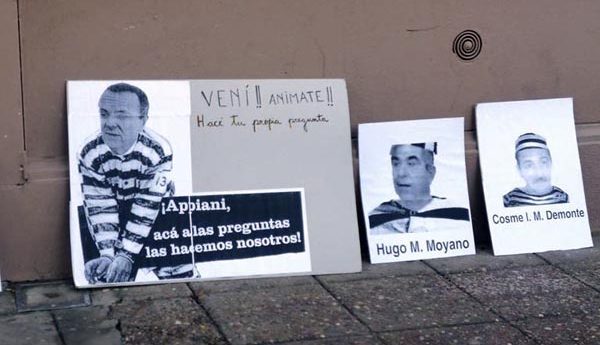 VENÍ!! ANIMATE!!
Hacé tu propia pregunta
13
¡Appiani,
acá alas preguntas
las hacemos nosotros!
Hugo M. Moyano
Cosme I. M. Demonte